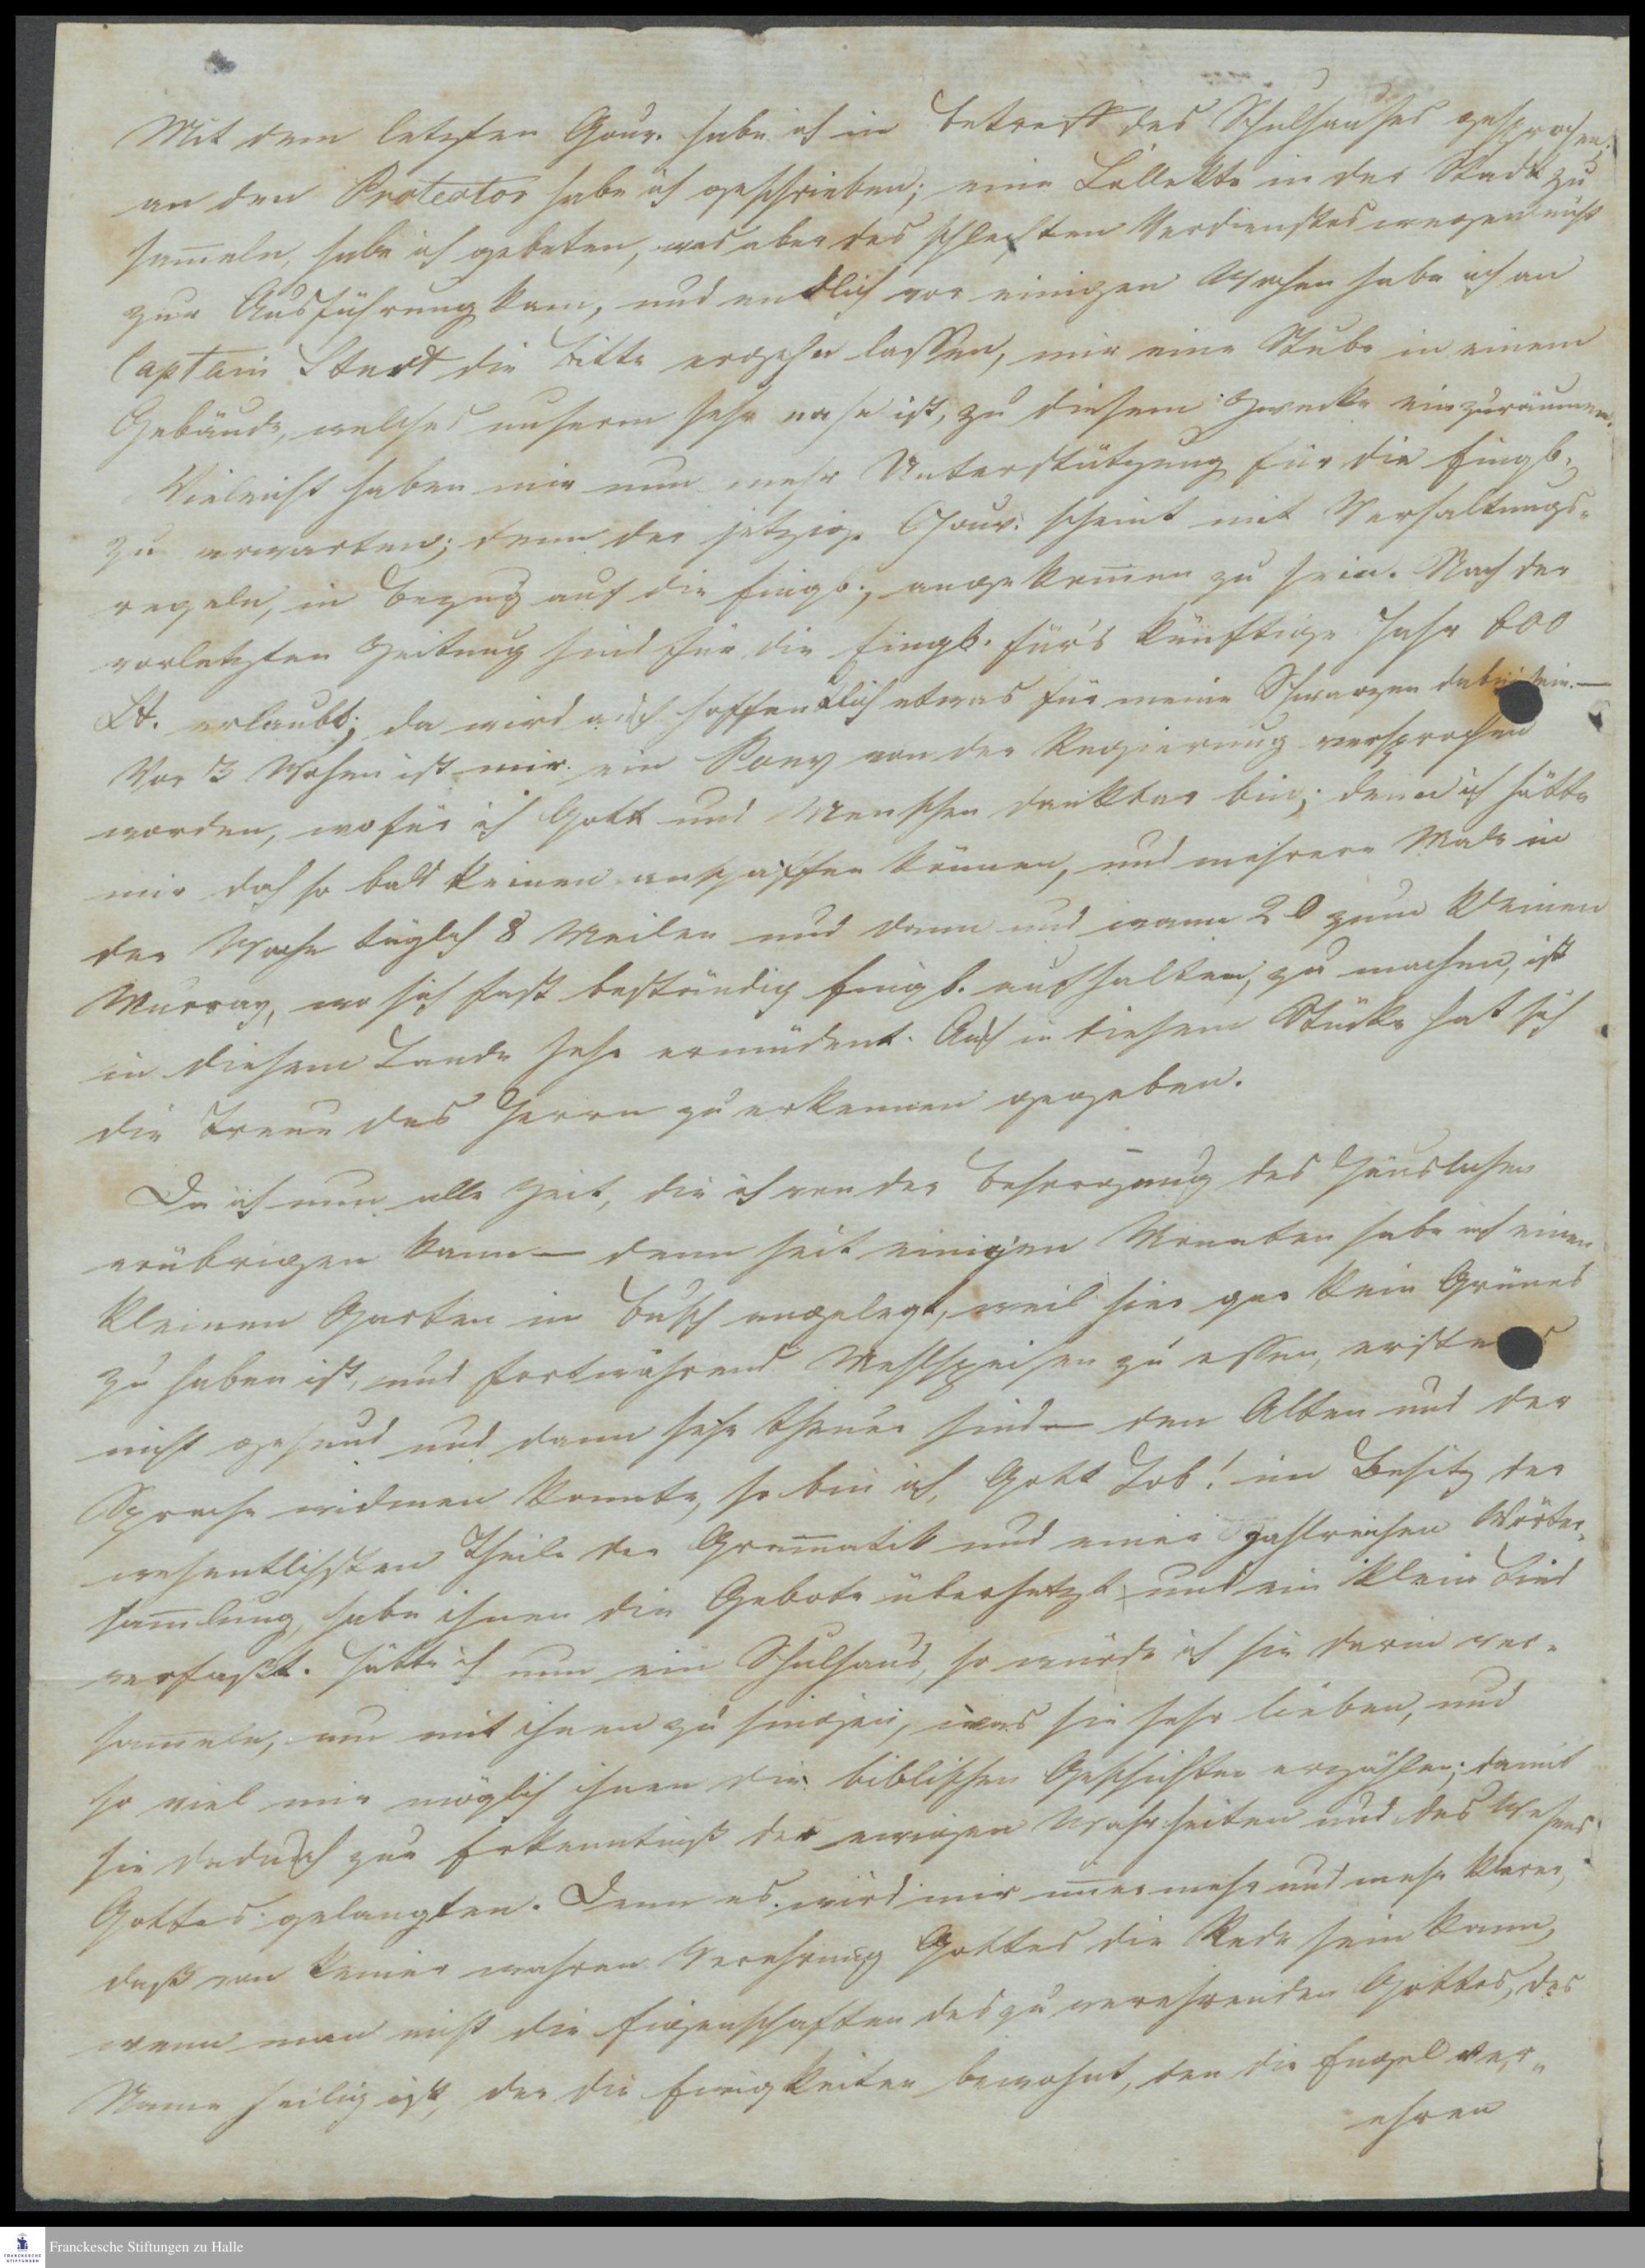 Mit dem letzten Gouv. habe ich in Betreff des Schulhauses gesprochen;
an den Protector habe ich geschrieben; eine Collekte in der Stadt zu
sam̄eln, habe ich gebeten, was aber des schlechten Verdienstes wegen nicht
zur Ausführung kam, und endlich vor einigen Wochen habe ich an
Captain die Bitte ergehn lassen, mir eine Stube in einem
Gebäude, welches unserm sehr nahe ist, zu diesem Zwecke einzuräumen.
Vieleicht haben wir nun mehr Unterstützung für die Eingb.
zu erwarten; denn der jetzige Gouv. scheint mit Verhaltungs-
regeln, in Bezug auf die Eingb., angekom̄en zu sein. Nach der
vorletzten Zeitung sind für die Eingb. für's künftige Jahr 600
£t. erlaubt; da wird auch hoffentlich etwas für meine Schwarzen dabei sein. —
Vor 3 Wochen ist mir ein Pony von der Regierung versprochen
worden, wofür ich Gott und Menschen dankbar bin; denn ich hätte
mir doch so bald keinen anschaffen können, und mehrere Male in
der Woche täglich 8 Meilen und dann und wann 20 zum kleinen
Murray, wo sich fast beständig Eingb. aufhalten, zu machen, ist
in diesem Lande sehr ermüdent. Auch in diesem Stücke hat sich
die Treue des Herrn zu erkennen gegeben.
Da ich nun alle Zeit, die ich von der Besorgung des Häuslichen
erübrigen kann — denn seit einigen Monaten habe ich einen
kleinen Garten im Busch angelegt, weil hier gar kein Grünes
zu haben ist, und fortwährend Mehlspeisen zu essen, erstens
nicht gesund und dann sehr theuer sind — den Alten und der
Sprache widmen konnte, so bin ich, Gott Lob! im Besitz der
wesentlichsten Theile der Gram̄atik und einer zahlreichen Wörter-
sam̄lung, habe ihnen die Gebote übersetzt und ein klein Lied
verfaßt. Hätte ich nun ein Schulhaus, so würde ich sie darin ver-
sam̄eln, um mit ihnen zu singen, was sie sehr lieben, und
so viel mir möglich ihnen die biblischen Geschichten erzählen; damit
sie dadurch zur Erkenntniß der ewigen Wahrheiten und des Wesens
Gottes gelangten. Denn es wird mir im̄er mehr und mehr klarer,
daß von keiner wahren Verehrung Gottes die Rede sein kann,
wenn man nicht die Eigenschaften des zu verehrenden Gottes, des
Name heilig ist, der die Ewigkeiten bewohnt, den die Engel ver-
ehren
Franckesche Stiftungen zu Halle
FRANCKESCHE
STIFTUNGEN